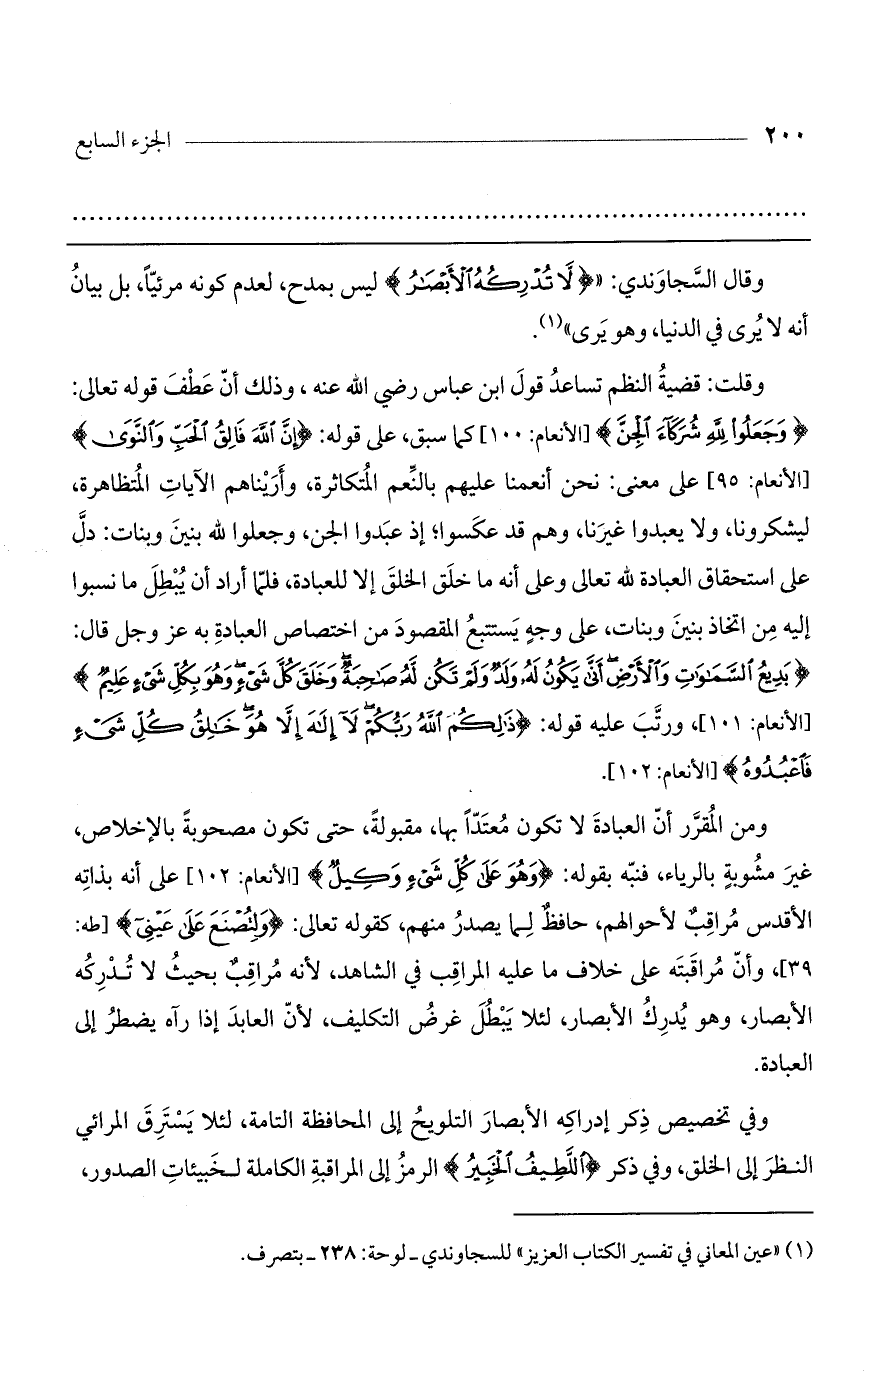 ٢٠٠ ــــــ الجزء السابع
................................................................
وقال السَّجاوَندي: «﴿لَّا تُدْرِكُهُ ٱلْأَبْصَٰرُ﴾ ليس بمدح، لعدم كونه مرئيّاً، بل بيانُ
أنه لا يُرى في الدنيا، وهو يَرى»(١).
وقلت: قضيةُ النظم تساعدُ قولَ ابن عباس رضي الله عنه ، وذلك أنّ عَطْفَ قوله تعالى:
﴿وَجَعَلُوا۟ لِلَّهِ شُرَكَآءَ ٱلْجِنَّ﴾ [الأنعام: ١٠٠] كما سبق، على قوله: ﴿إِنَّ ٱللَّهَ فَالِقُ ٱلْحَبِّ وَٱلنَّوَىٰ﴾
[الأنعام: ٩٥] على معنى: نحن أنعمنا عليهم بالنِّعم المُتكاثرة، وأَرَيْناهم الآياتِ المُتظاهرة،
ليشكرونا، ولا يعبدوا غيرَنا، وهم قد عكَسوا؛ إذ عبَدوا الجن، وجعلوا لله بنينَ وبنات: دلَّ
على استحقاق العبادة لله تعالى وعلى أنه ما خلَق الخلقَ إلا للعبادة، فلمّا أراد أن يُبْطِلَ ما نسبوا
إليه مِن اتخاذ بنينَ وبنات، على وجهٍ يَستتبعُ المقصودَ من اختصاص العبادةِ به عز وجل قال:
﴿بَدِيعُ ٱلسَّمَٰوَٰتِ وَٱلْأَرْضِ ۖ أَنَّىٰ يَكُونُ لَهُۥ وَلَدٌ وَلَمْ تَكُن لَّهُۥ صَٰحِبَةٌ ۖ وَخَلَقَ كُلَّ شَىْءٍ ۖ وَهُوَ بِكُلِّ شَىْءٍ عَلِيمٌ﴾
[الأنعام: ١٠١]، ورتَّبَ عليه قوله: ﴿ذَٰلِكُمُ ٱللَّهُ رَبُّكُمْ ۖ لَآ إِلَٰهَ إِلَّا هُوَ ۖ خَٰلِقُ كُلِّ شَىْءٍ
فَٱعْبُدُوهُ﴾ [الأنعام: ١٠٢].
ومن المُقرَّر أنّ العبادةَ لا تكون مُعتَدّاً بها، مقبولةً، حتى تكون مصحوبةً بالإخلاص،
غيرَ مشُوبةٍ بالرياء، فنبّه بقوله: ﴿وَهُوَ عَلَىٰ كُلِّ شَىْءٍ وَكِيلٌ﴾ [الأنعام: ١٠٢] على أنه بذاتِه
الأقدس مُراقِبٌ لأحوالهم، حافظٌ لِـما يصدرُ منهم، كقوله تعالى: ﴿وَلِتُصْنَعَ عَلَىٰ عَيْنِىٓ﴾ [طه:
٣٩]، وأنّ مُراقَبتَه على خلاف ما عليه المراقِب في الشاهد، لأنه مُراقِبٌ بحيثُ لا تُـدْرِكُه
الأبصار، وهو يُدرِكُ الأبصار، لئلا يَبْطُلَ غرضُ التكليف، لأنّ العابدَ إذا رآه يضطرُ إلى
العبادة.
وفي تخصيص ذِكر إدراكِه الأبصارَ التلويحُ إلى المحافظة التامة، لئلا يَسْتَرِقَ المرائي
النظرَ إلى الخلق، وفي ذكر ﴿ٱللَّطِيفُ ٱلْخَبِيرُ﴾ الرمزُ إلى المراقبةِ الكاملة لـخَبيئاتِ الصدور،
(١) «عين المعاني في تفسير الكتاب العزيز» للسجاوندي ـ لوحة: ٢٣٨ ـ بتصرف.